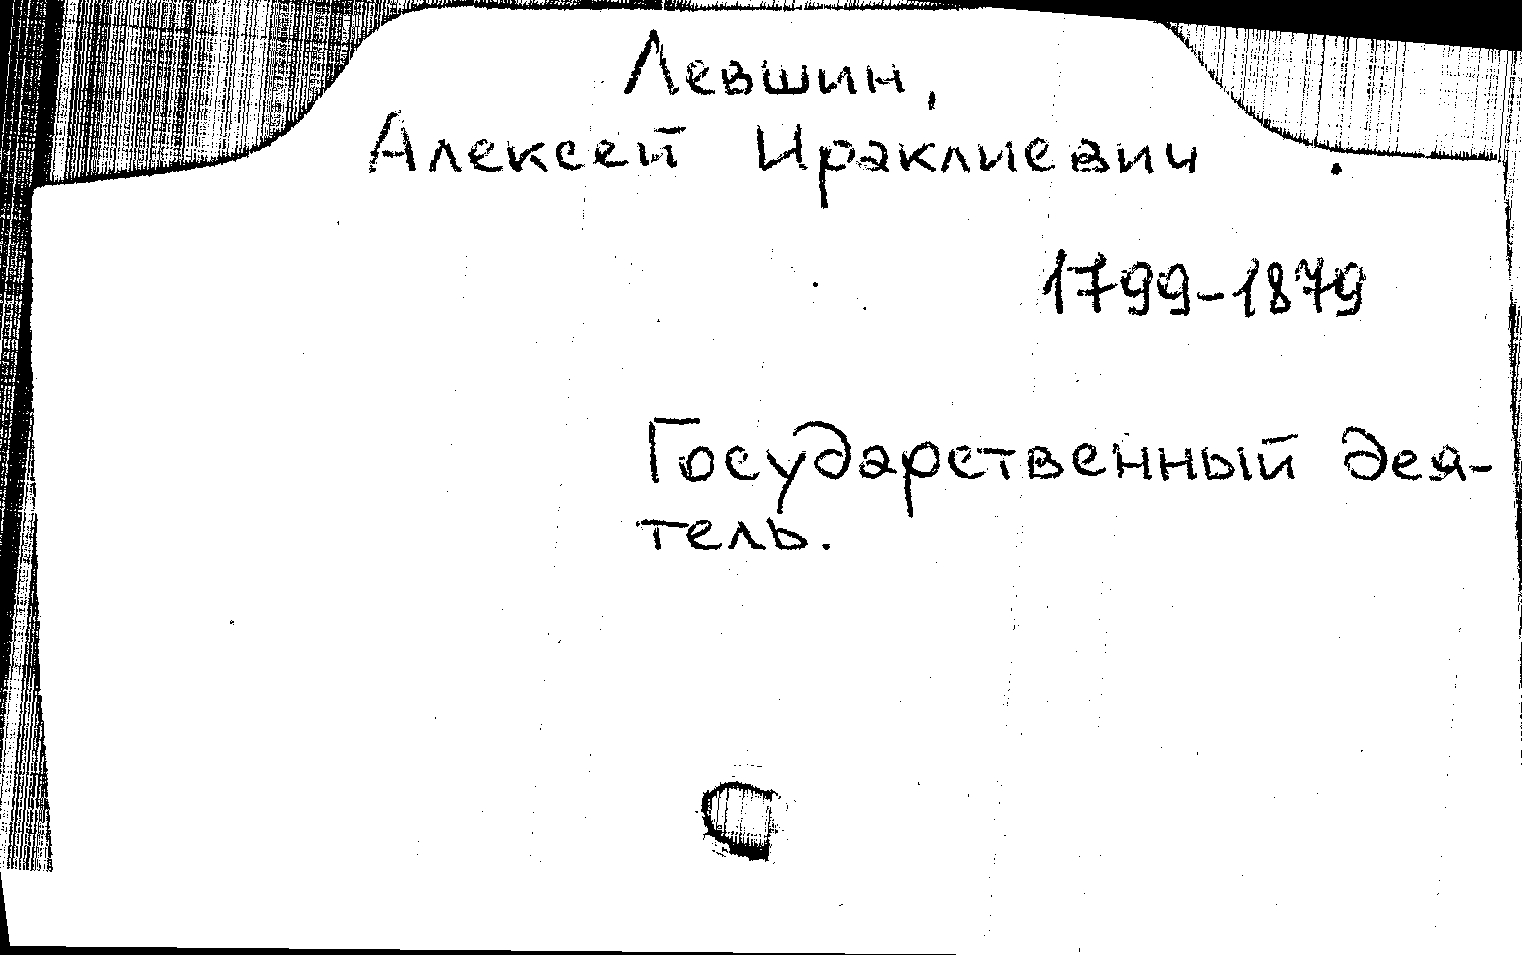 Левшин,
Алексей Ираклиевич.
1799-1879
Государственный дея-
тель.